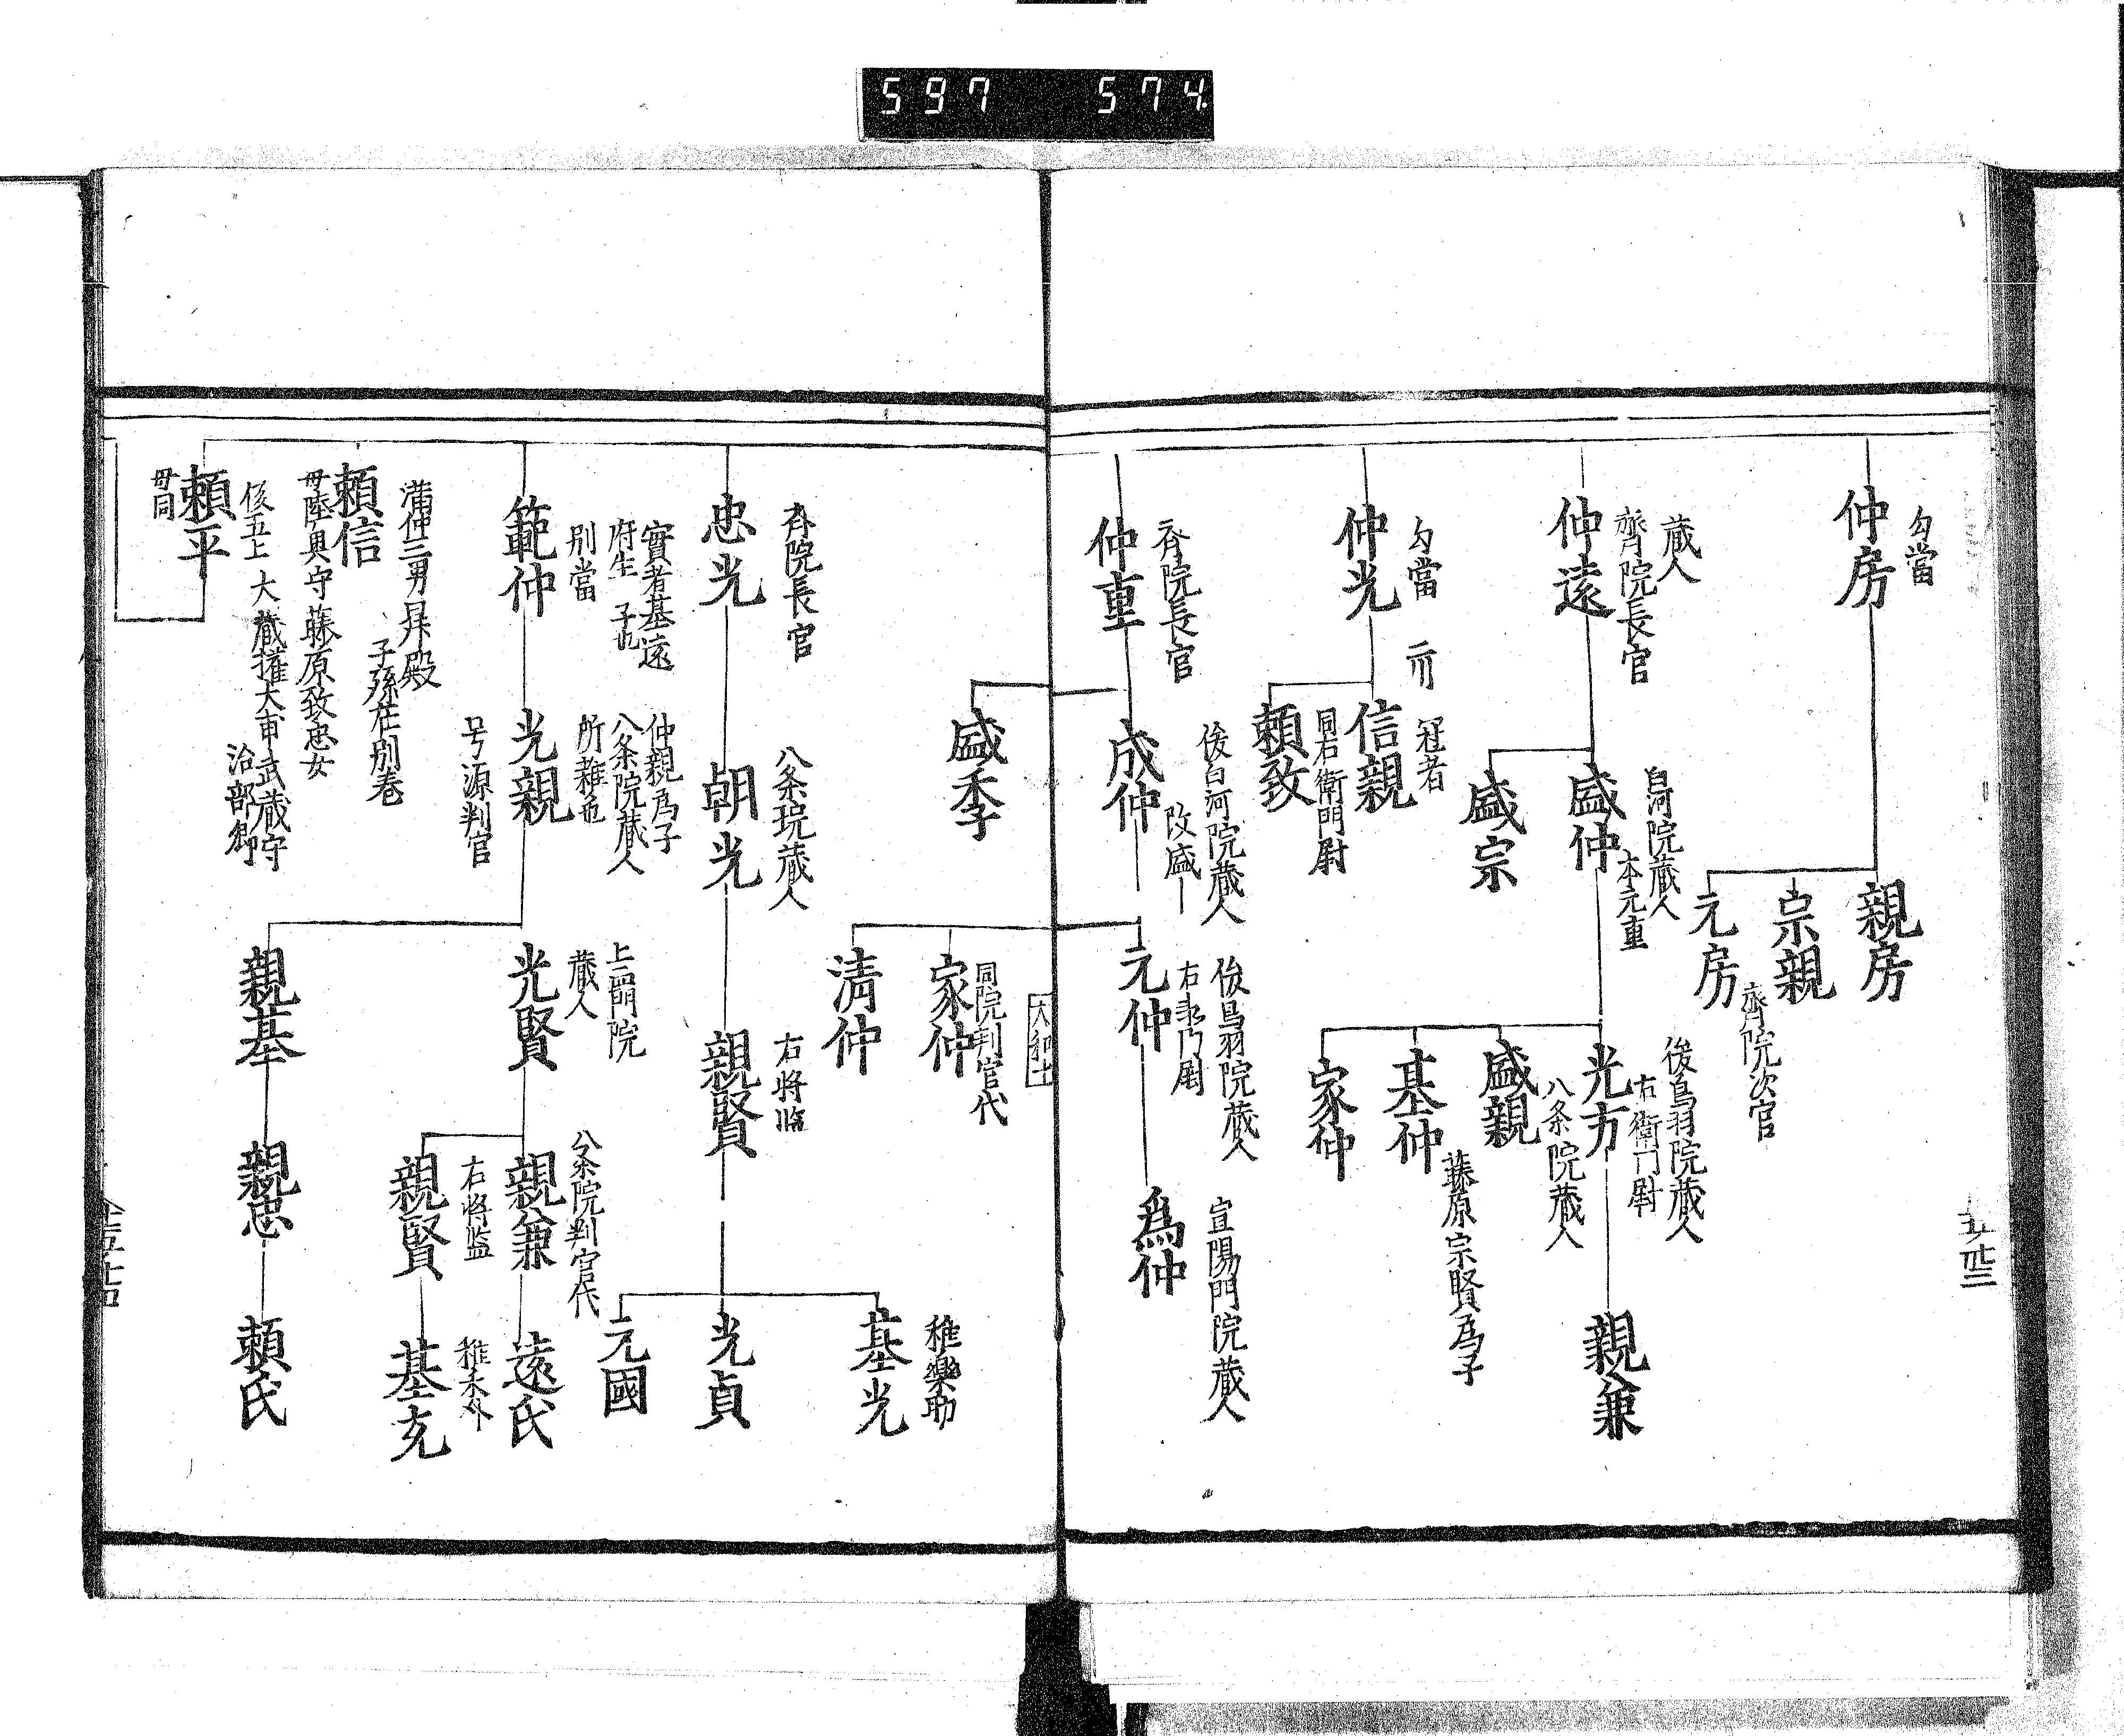 597 574
勾當
仲房
親房
宗親
齊院次官
元房
蔵人
齊院長官
仲遠
白河院蔵人
本元重
盛仲
盛宗
後鳥羽院蔵人
右衛門尉
光方
親兼
八条院蔵人
盛親
藤原宗賢為子
基仲
家仲
勾當
仲光
冠者
信親
同右衛門尉
頼致
斉院長官
仲重
後白河院蔵人
改盛｜
成仲
盛季
後鳥羽院蔵人
元仲
宣陽門院蔵人
為仲
同院判官代
家仲
清仲
斉院長官
忠光
八条院蔵人
朝光
右将監
親賢
雅樂助
基光
光貞
元國
實者基遠
府生 子也
別當
範仲
仲親為子
八条院蔵人
所雜色
光親
号源判官
上西門院
蔵人
光賢
八条院判官代
親兼
遠氏
右将監
親賢
基充
親基
親忠
頼氏
満仲三男 昇殿
子孫在別巻
頼信
母陸奥守藤原致忠女
従五上 大蔵権大甫 武蔵守
治部卿
頼平
母同